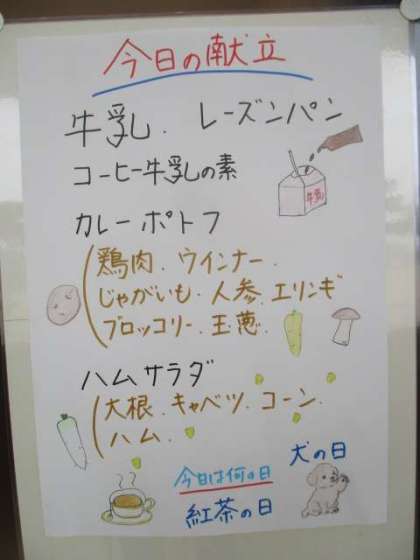 今日の献立
牛乳. レーズンパン
コーヒー牛乳の素
牛乳
カレーポトフ
鶏肉. ウインナー.
じゃがいも. 人参. エリンギ
ブロッコリー. 玉葱.
ハムサラダ
大根. キャベツ. コーン.
ハム.
今日は何の日
犬の日
紅茶の日